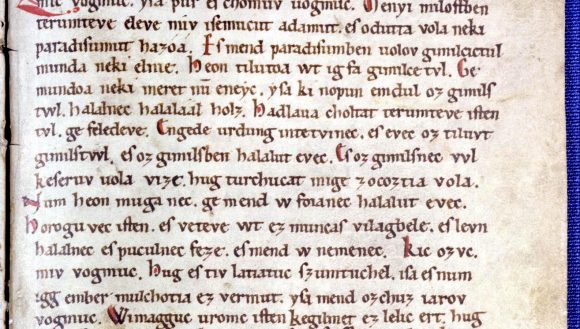 mic vogmuc. ysa pur es chomuv uogmuc. Menyi milostben
terumteve eleve miv isemucut adamut. es odutta vola neki
paradisumut hazoa. Es mend paradisumben uolov gimilcictul
munda neki elnie. Heon tilutoa wt ig fa gimilce tvl. Ge
mundoa neki meret nū eneyc. ysa ki nopun emdul oz gimils
twl. halalnec halalaal holz. Hadlaua choltat terumteve isten
tvl. ge feledeve. Engede urdung intetvinec. es evec oz tiluvt
gimilstwl. es oz gimilsben halalut evec. Es oz gimilsnec vvl
keseruv uola vize. hug turchucat mige zocoztia vola.
Num heon muga nec. ge mend w foianec halalut evec.
Horogu vec isten. es veteve wt ez muncas vilagbele. es levn
halalnec es puculnec feze. es mend w nemenec. Kic ozvc.
miv vogmuc. Hug es tiv latiatuv szumtuchel. isa es num
igg ember mulchotia ez vermut. ysa mend ozchuz iarov
vogmuc. Wimagguc uromc isten kegilmet ez lelic ert. hug